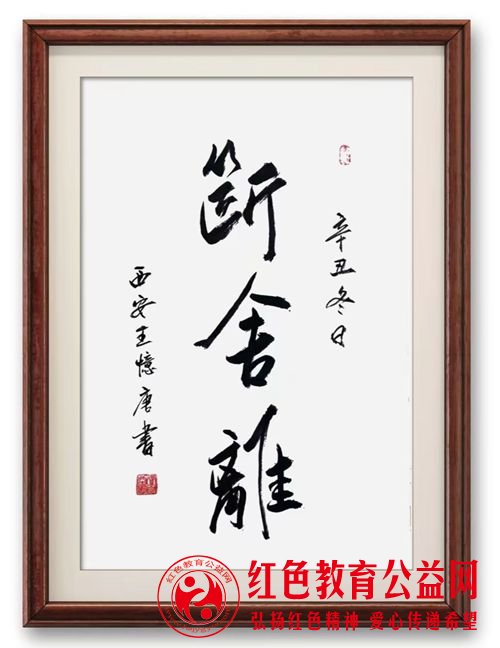 辛丑冬日
斷舍離
西安王憶唐書
红色教育公益网
红色教育公益网
弘扬红色精神 爱心传递希望